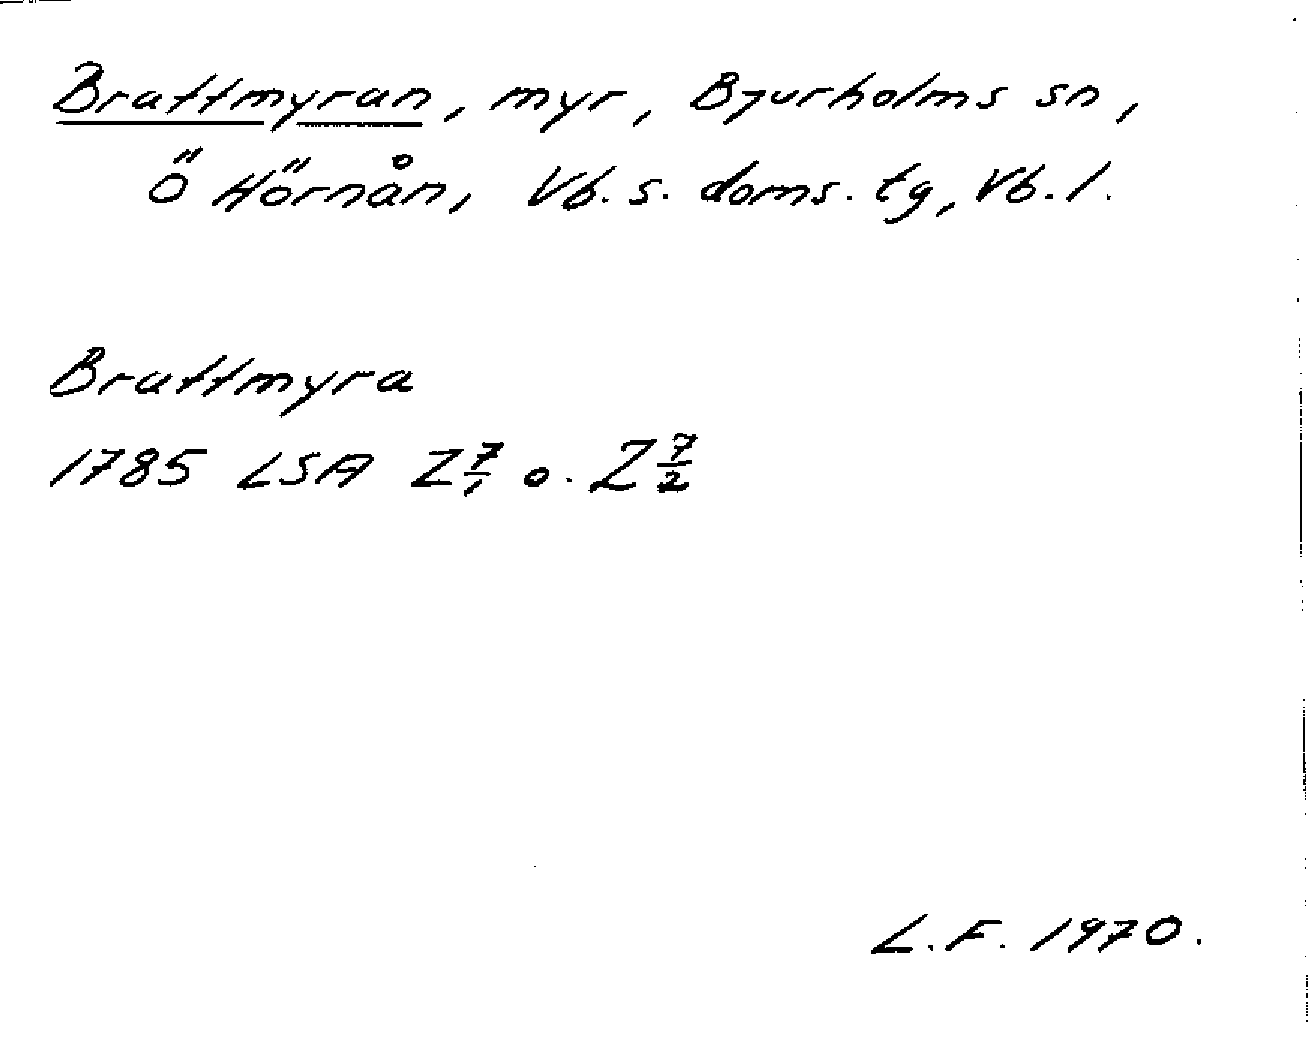 Brattmyran, myr, Bjurholms sn,
Ö Hörnån, Vb. s. doms. tg, Vb. l.
Brattmyra
1785 LSA Z 7/1 o. Z 7/2
L.F. 1970.